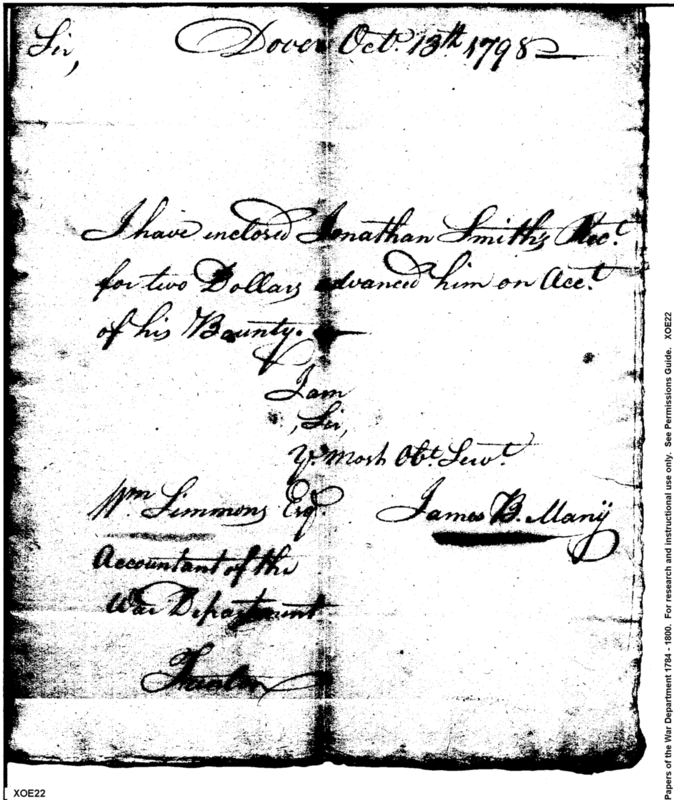 Sir, Dover Oct. 13th 1798
I have inclosed Jonathan Smith's Rec.t
for two Dollars advanced him on Acc.t
of his Bounty.
I am
Sir,
Y. Most Ob.t Serv.t
Wm Simmons Esq.r James B. Many
Accountant of the
War Department
Trenton
XOE22
Papers of the War Department 1784 - 1800. For research and instructional use only. See Permissions Guide. XOE22